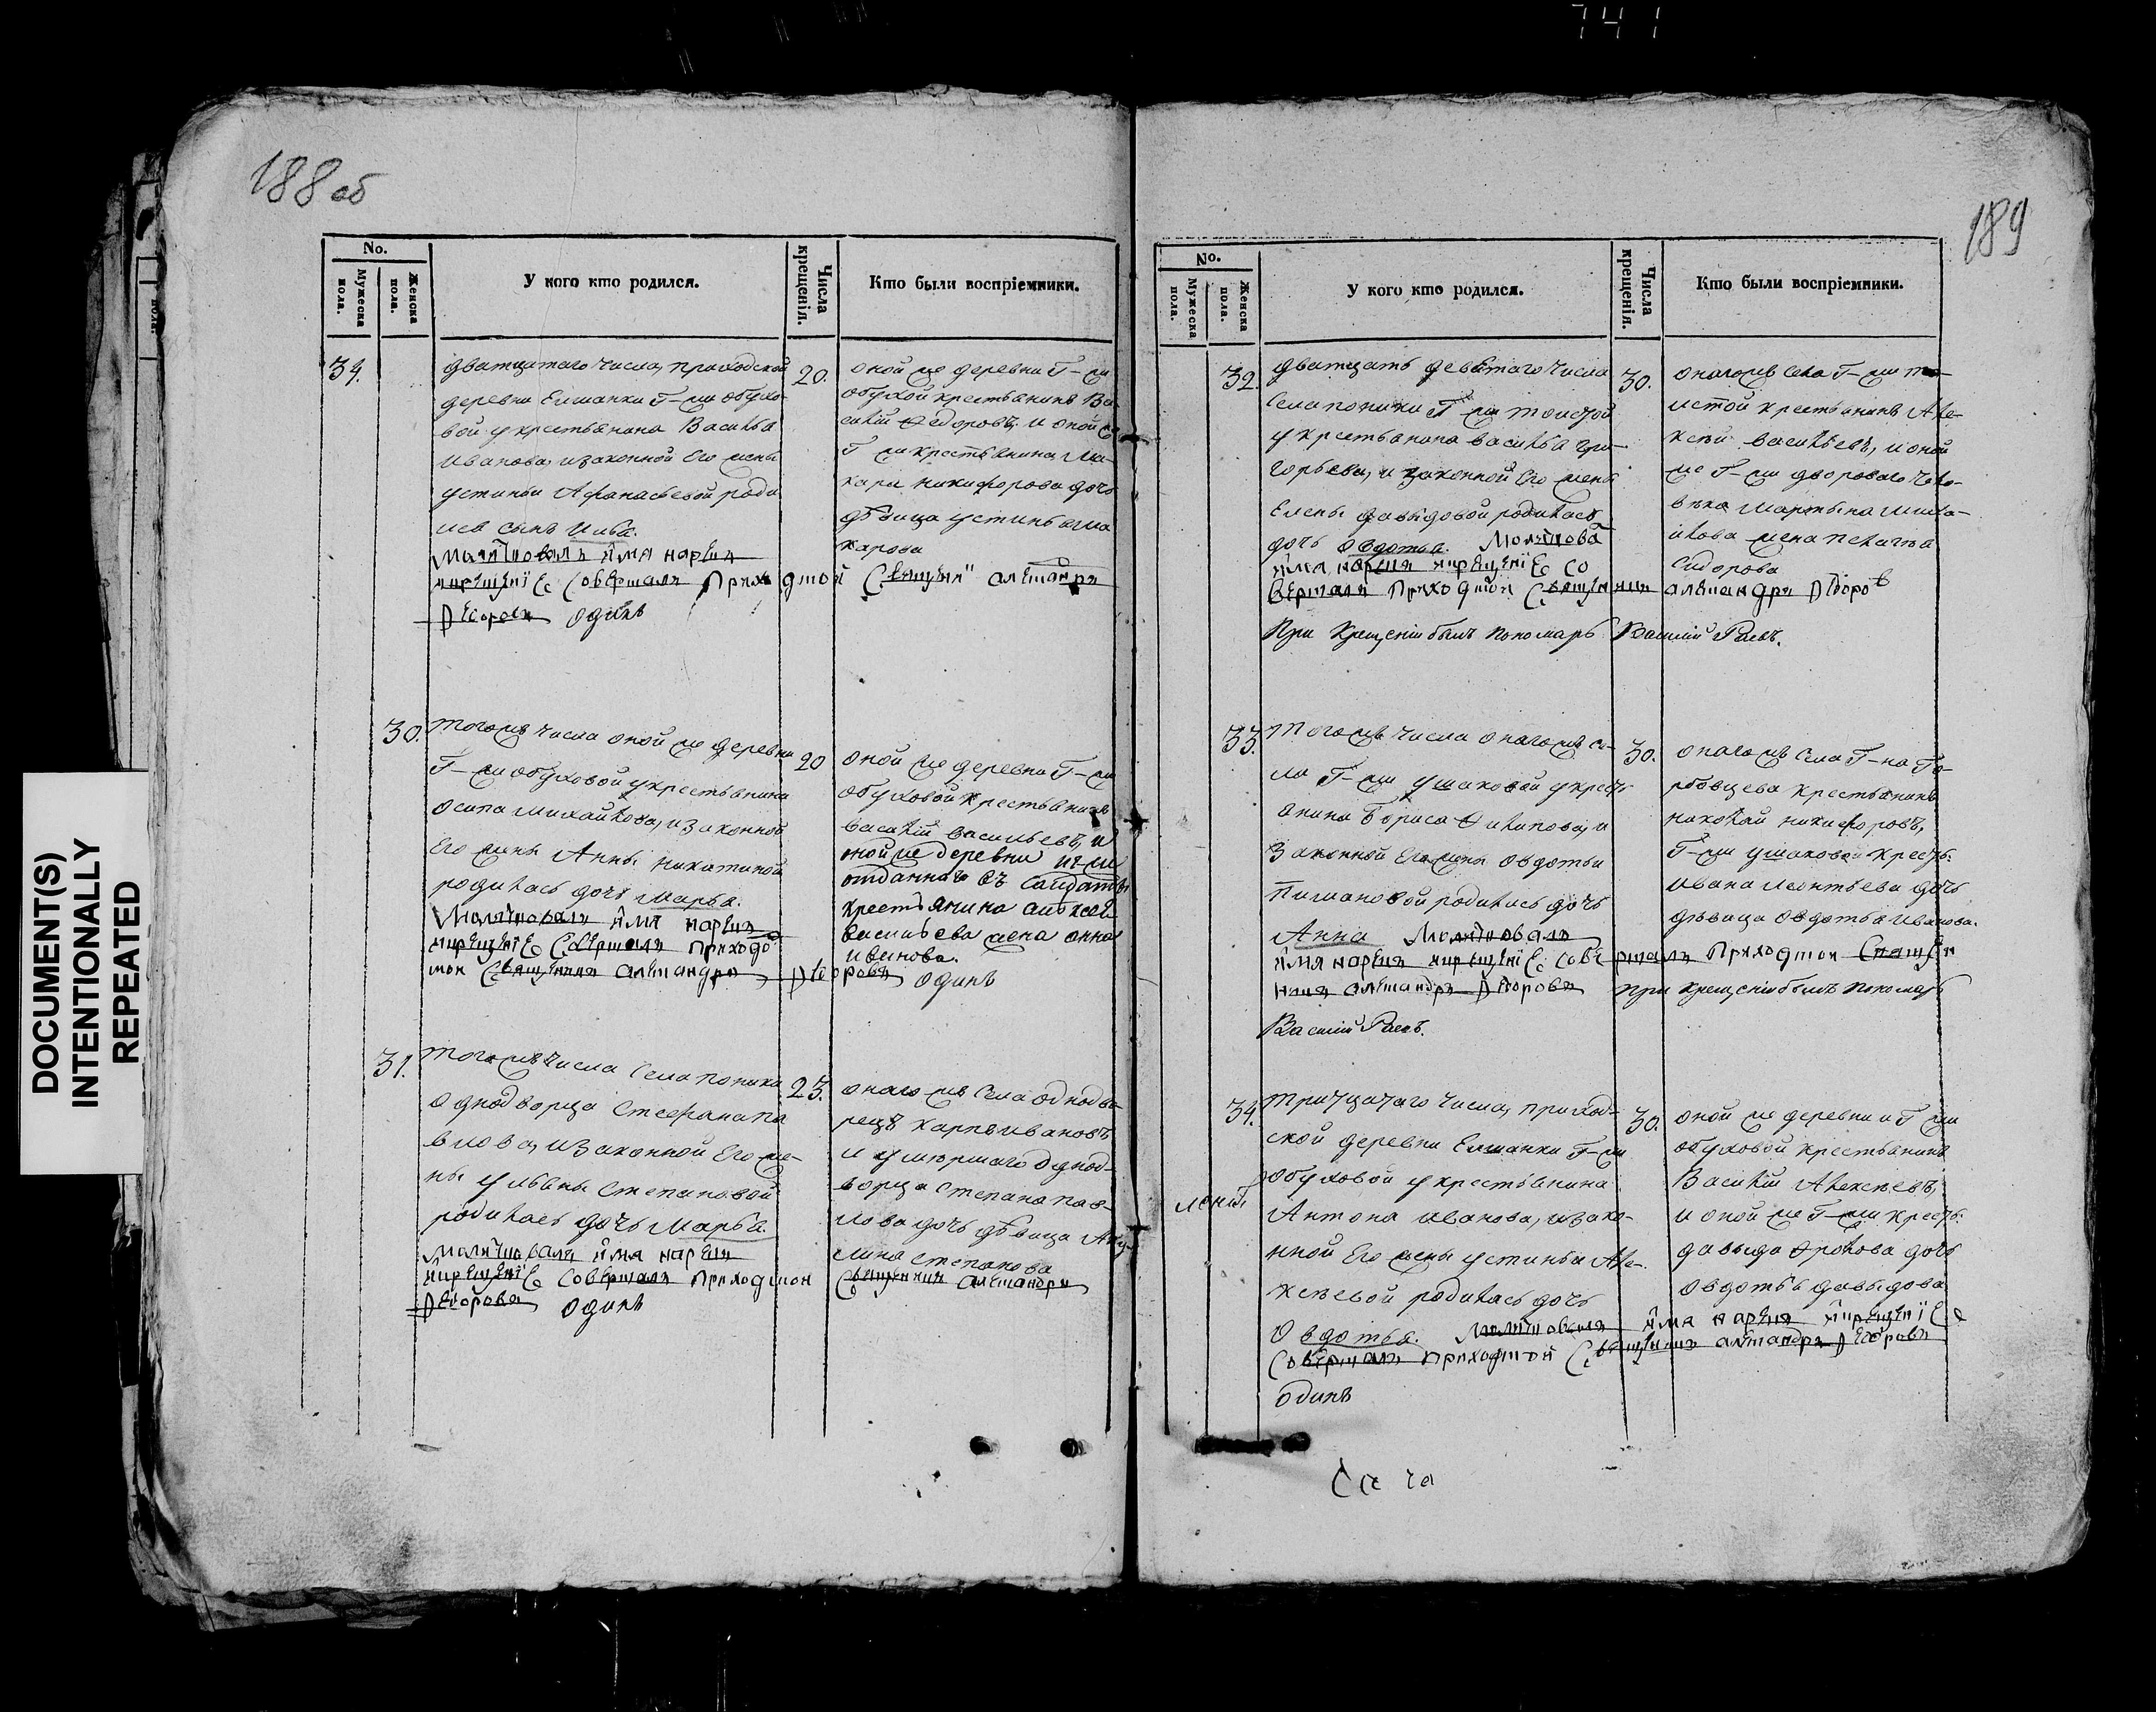 741
188 об
189
DOCUMENT(S)
INTENTIONALLY
REPEATED
No.
Мужеска пола.
Женска пола.
У кого кто родился.
Числа крещенія.
Кто были воспріемники.
34.
дватцатаго числа, приходской
деревни Елшанки Г-жи Обухо-
вой у крестьянина Василья
Иванова, и законной Его жены
устиньи Афанасьевой роди
лся сынъ
молитвовалъ имя нарекъ
и крещеніе совершалъ приходской священникъ александръ
одинъ
20.
оной же деревни Г-жи
обуховой крестьянинъ Ва-
силій Федоровъ, и оной же
Г-жи крестьянина Ма-
кара никифорова дочь
дѣвица устинья ма
карова
30.
тогожъ числа оной же деревни
Г-жи обуховой у крестьянина
осипа михайлова, и законной
Его жены Анны никитиной
родилась дочь Марья.
Молитвовалъ имя нарекъ
и крещеніе совершалъ приход
ской священникъ александръ
одинъ
20
оной же деревни Г-жи
обуховой крестьянинъ
василій васильевъ, и
оной же деревни
отданнаго въ салдаты
крестьянина алексея
васильева жена анна
иванова.
31.
тогожъ числа села
однодворца Стефана па
влова, и законной Его же-
ны ульяны степановой
родилась дочь Марья.
молитвовалъ имя нарекъ
и крещеніе совершалъ приходской священникъ александръ
одинъ
23.
онаго жъ села однодво-
рецъ карпъ ивановъ
и умершаго однод-
ворца степана пав-
лова дочь дѣвица
степанова
No.
Мужеска пола.
Женска пола.
У кого кто родился.
Числа крещенія.
Кто были воспріемники.
32.
дватцать девятаго числа
села Г-жи толстой
у крестьянина василья гри-
горьева, и законной Его жены
Елены давыдовой родилась
дочь овдотья. Молитвова
имя нарекъ и крещеніе со
вершалъ приходской священникъ александръ
При крещеніи былъ пономарь Василій Раевъ.
30.
онагожъ села Г-жи то-
лстой крестьянинъ Але-
ксѣй васильевъ, и оной
же Г-жи двороваго чело-
вѣка мартына миха-
илова жена пелагѣя
Сидорова
33.
Тогожъ числа онагожъ се-
ла Г-жи ушаковой у кресть
янина Бориса Филипова, и
законной Его жены овдотьи
родилась дочь
Анна Молитвовалъ
имя нарекъ и крещеніе совершалъ приходской священ
никъ александръ при крещеніи былъ пономарь
Василій Раевъ.
30.
онагожъ села Г-на Го-
рбовцева крестьянинъ
николай никифоровъ,
Г-жи ушаковой крест:
ивана леонтьева дочь
дѣвица овдотья иванова.
34.
Тритцатаго числа, приход-
ской деревни Елшанки Г-жи
обуховой у крестьянина
Антона иванова, и зако-
нной Его жены устиньи Але-
ксѣевой родилась дочь
Овдотья. Молитвовалъ имя нарекъ и крещеніе
совершалъ приходской священникъ александръ
одинъ
30.
оной же деревни и Г-жи
обуховой крестьянинъ
Василій Алексѣевъ,
и оной же Г-жи крест:
давыда фролова дочь
овдотья давыдова